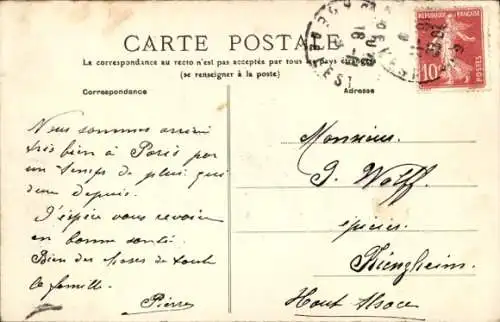 CARTE POSTALE
La correspondance au recto n'est pas acceptée par tous les pays étrangers
(se renseigner à la poste)
Correspondance
Adresse
RÉPUBLIQUE FRANÇAISE
10
POSTES
Nous sommes arrivés
très bien à Paris par
un temps de pluie qui
dure depuis.
J'espère vous revoir
en bonne santé.
Bien des choses de toute
la famille.
Pierre
Monsieur
J. Wolff
épicier
Haut Alsace